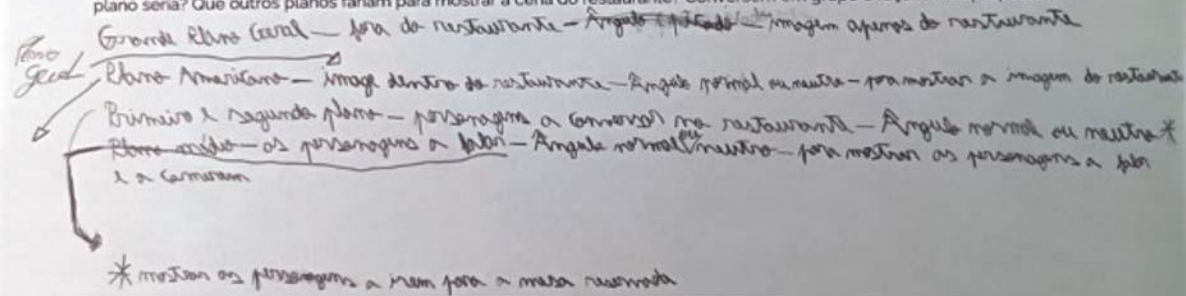 plano seria? Que outros planos fariam para mostrar a cena do restaurante? Conversem em grupo e
Grande Plano Geral — fora do restaurante — Ângulo picado — imagem apenas do restaurante
Plano Geral
Plano Americano — image dentro do restaurante — Ângulo normal ou neutro — pra mostrar a imagem do restaurante
Primeiro e segundo plano — personagens a conversar no restaurante — Ângulo normal ou neutro *
Plano médio — os personagens a falar — Ângulo normal ou neutro — para mostrar as personagens a falar
e a comeram
* mostrar os personagens a irem para a mesa reservada